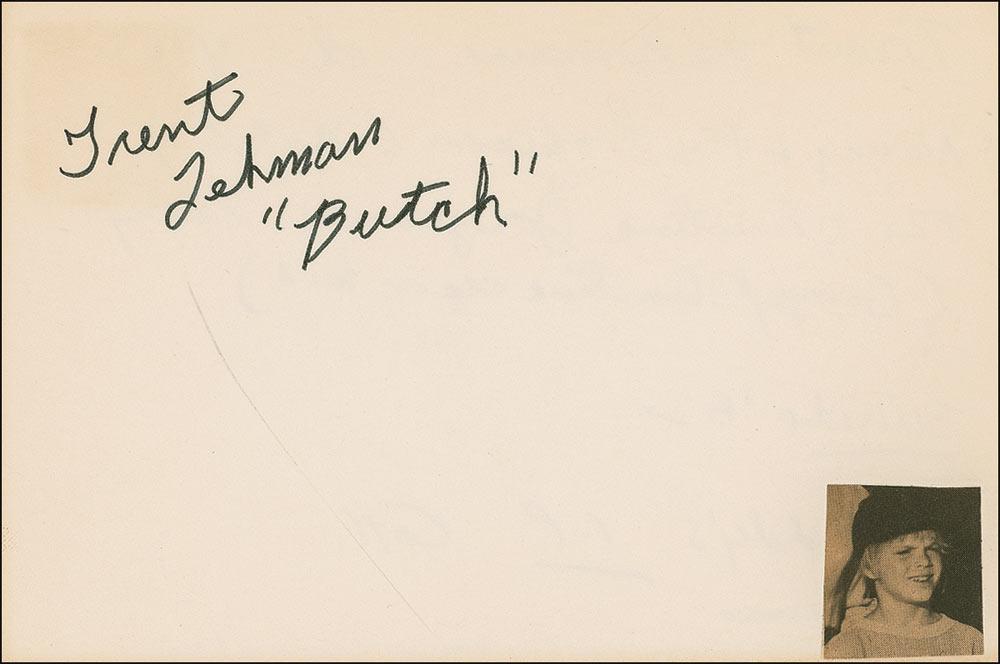 Trent
Lehman
"Butch"